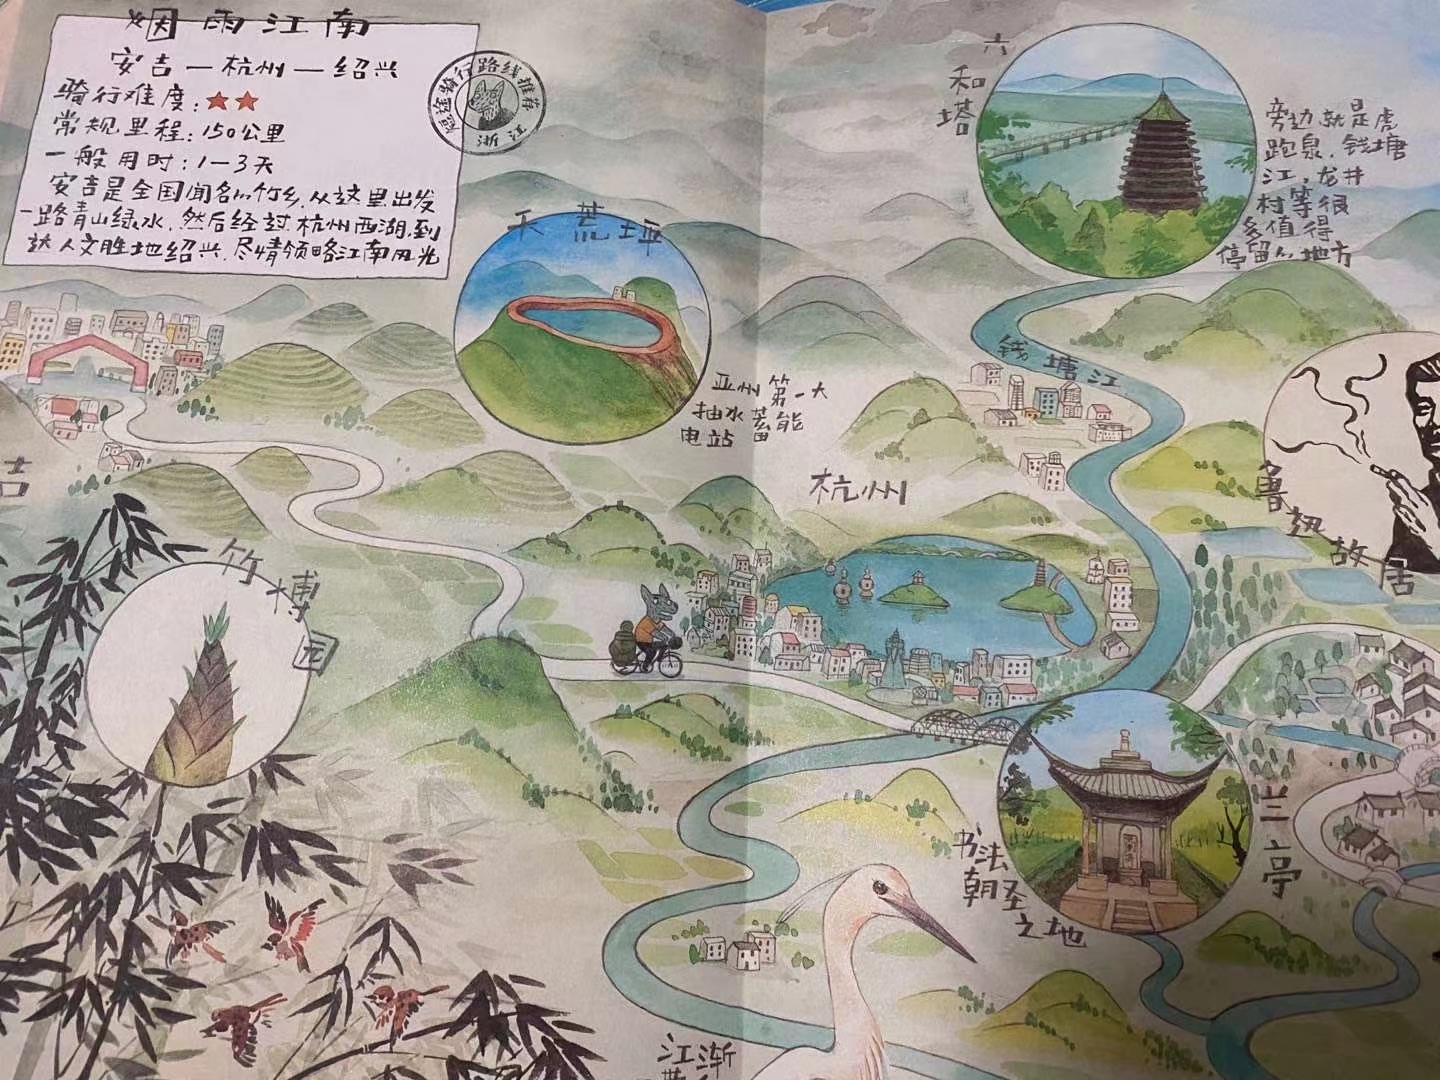 烟雨江南
安吉—杭州—绍兴
骑行难度：★★
常规里程：150公里
一般用时：1—3天
安吉是全国闻名的竹乡,从这里出发
一路青山绿水,然后经过杭州西湖,到
达人文胜地绍兴,尽情领略江南风光
短途骑行路线推荐
浙江
六和塔
旁边就是虎
跑泉,钱塘
江,龙井
村等很
多值得
停留的地方
天荒坪
亚州第一大
抽水蓄能
电站
钱塘江
杭州
鲁迅故居
吉
竹博园
兰亭
书法
朝圣
之地
江浙